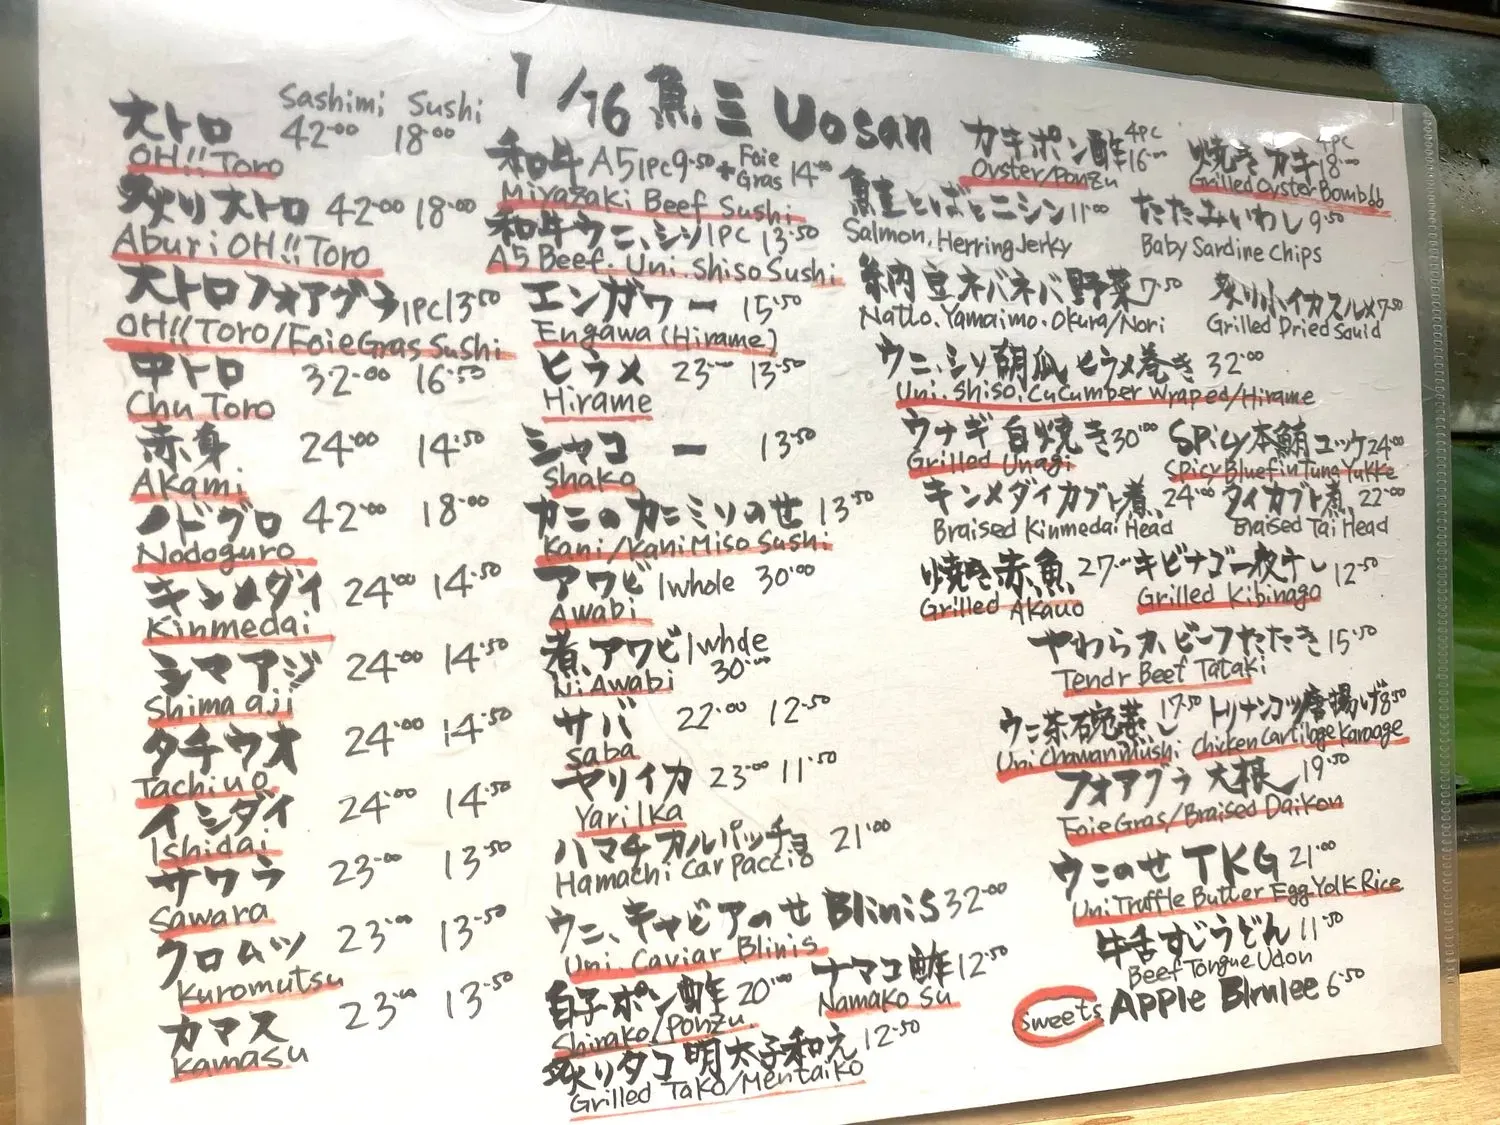 1/16 魚三 Uosan
Sashimi Sushi
大トロ 42.00 18.00
OH!! Toro
炙り大トロ 42.00 18.00
Aburi OH!! Toro
大トロフォアグラ 1PC 13.50
OH!! Toro/Foie Gras Sushi
中トロ 32.00 16.50
Chu Toro
赤身 24.00 14.50
Akami
ノドグロ 42.00 18.00
Nodoguro
キンメダイ 24.00 14.50
Kinmedai
シマアジ 24.00 14.50
Shima aji
タチウオ 24.00 14.50
Tachiuo
イシダイ 24.00 14.50
Ishidai
サワラ 23.00 13.50
Sawara
クロムツ 23.00 13.50
Kuromutsu
カマス 23.00 13.50
Kamasu
和牛 A5 1PC 9.50 + Foie Gras 14.00
Miyazaki Beef Sushi
和牛ウニ、シソ 1PC 13.50
A5 Beef. Uni. Shiso Sushi
エンガワ ー 15.50
Engawa (Hirame)
ヒラメ 23.00 13.50
Hirame
シャコ ー 13.50
Shako
カニのカニミソのせ 13.50
Kani/Kani Miso Sushi
アワビ 1whole 30.00
Awabi
煮アワビ 1whole 30.00
Ni Awabi
サバ 22.00 12.50
Saba
ヤリイカ 23.00 11.50
Yari Ika
ハマチカルパッチョ 21.00
Hamachi Carpaccio
ウニ、キャビアのせ Blinis 32.00
Uni. Caviar Blinis
白子ポン酢 20.00
Shirako/Ponzu
ナマコ酢 12.50
Namako Su
炙りタコ明太子和え 12.50
Grilled Tako/Mentaiko
カキポン酢 4PC 16.00
Oyster/Ponzu
焼きカキ 4PC 18.00
Grilled Oyster Bomb66
鮭とばとニシン 11.00
Salmon, Herring Jerky
たたみいわし 9.50
Baby Sardine Chips
納豆ネバネバ野菜 7.50
Natto. Yamaimo. Okura/Nori
炙り小イカスルメ 7.50
Grilled Dried Squid
ウニ、シソ胡瓜ヒラメ巻き 32.00
Uni. Shiso. Cucumber Wraped/Hirame
ウナギ白焼き 30.00
Grilled Unagi
Spicy本鮪ユッケ 24.00
Spicy Bluefin Tuna Yukke
キンメダイカブト煮 24.00
Braised Kinmedai Head
タイカブト煮 22.00
Braised Tai Head
焼き赤魚 27.00
Grilled Akauo
キビナゴ一夜干し 12.50
Grilled Kibinago
やわらかビーフたたき 15.50
Tendr Beef Tataki
ウニ茶碗蒸し 17.50
Uni Chawanmushi
トリナンコツ唐揚げ 8.50
Chicken Cartilage Karaage
フォアグラ大根 19.50
Foie Gras/Braised Daikon
ウニのせTKG 21.00
Uni Truffle Butter Egg Yolk Rice
牛舌すじうどん 11.50
Beef Tongue Udon
Sweets Apple Blrulee 6.50